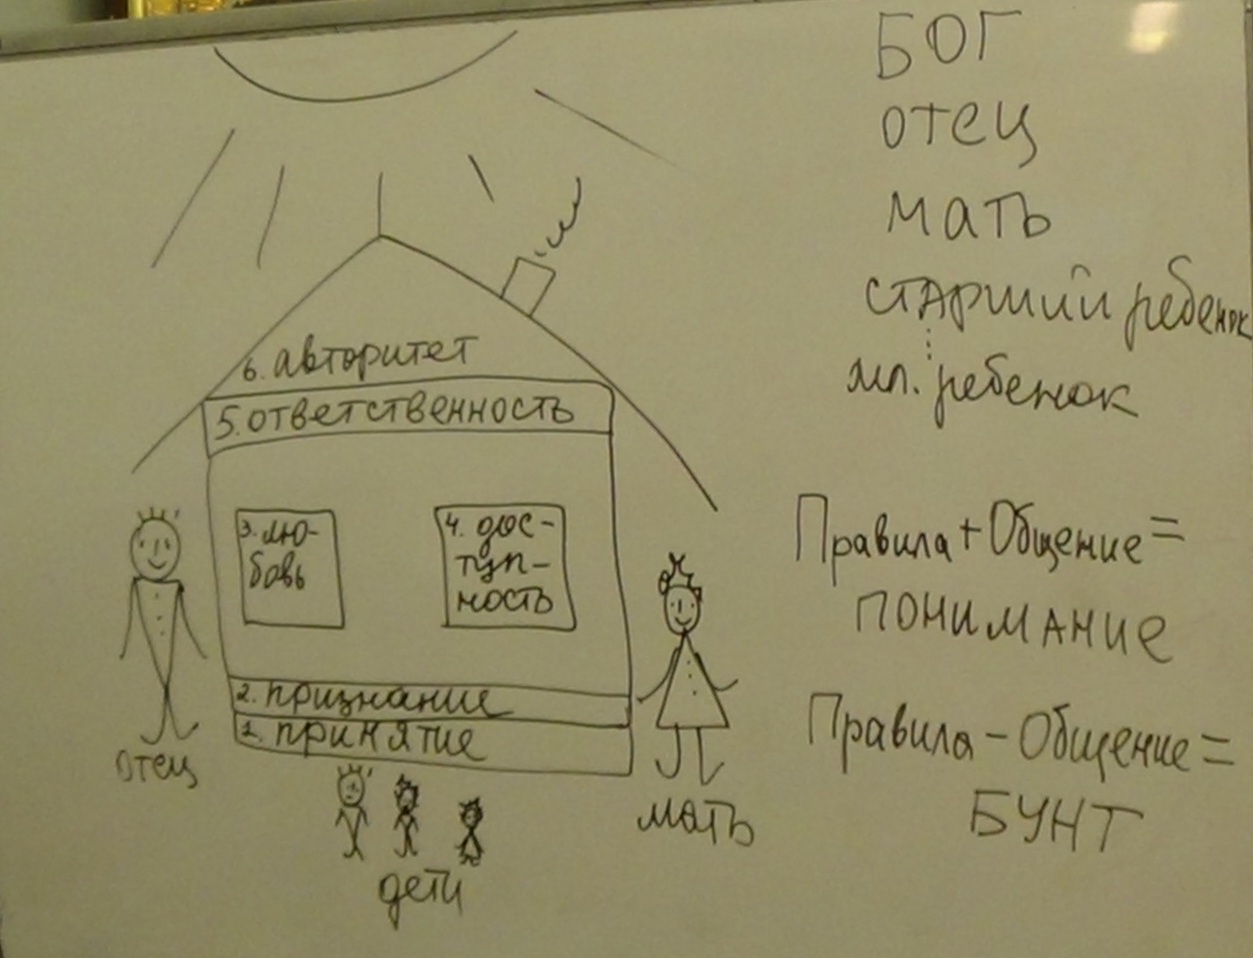 БОГ
отец
мать
старший ребенок
мл. ребенок
6. авторитет
5. ответственность
3. лю-
бовь
4. дос-
туп-
ность
2. признание
1. принятие
отец
мать
дети
Правила + Общение =
ПОНИМАНИЕ
Правила - Общение =
БУНТ